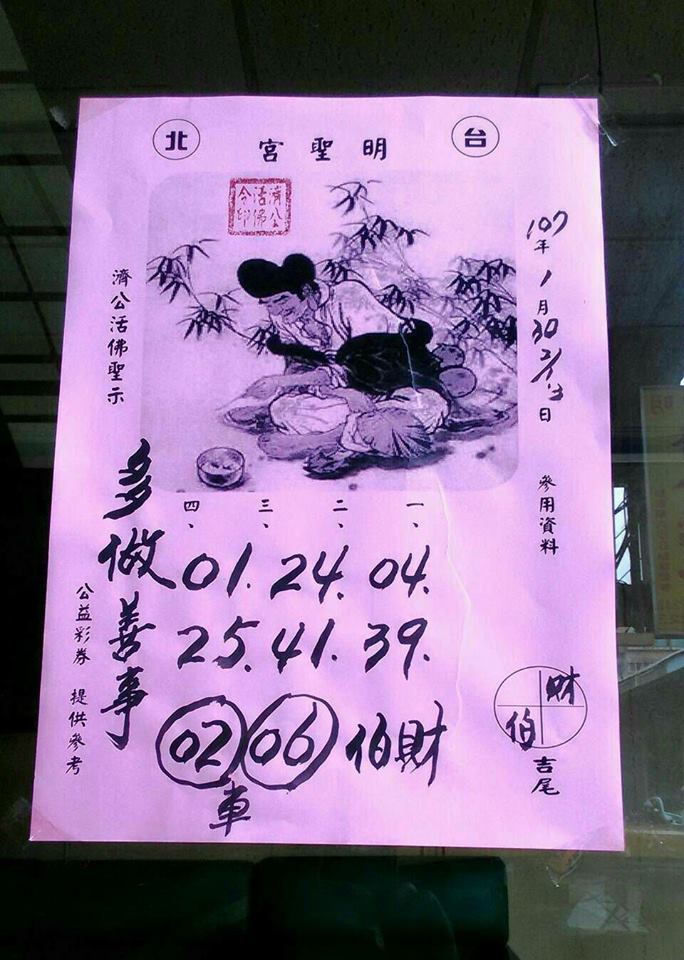 台 明聖宮 北
濟公
活佛
令印
107年1月30 日
參用資料
財
伯
吉尾
濟公活佛聖示
一、 二、 三、 四、
01. 24. 04.
25. 41. 39.
02 06 伯財
車
多做善事
公益彩券 提供參考